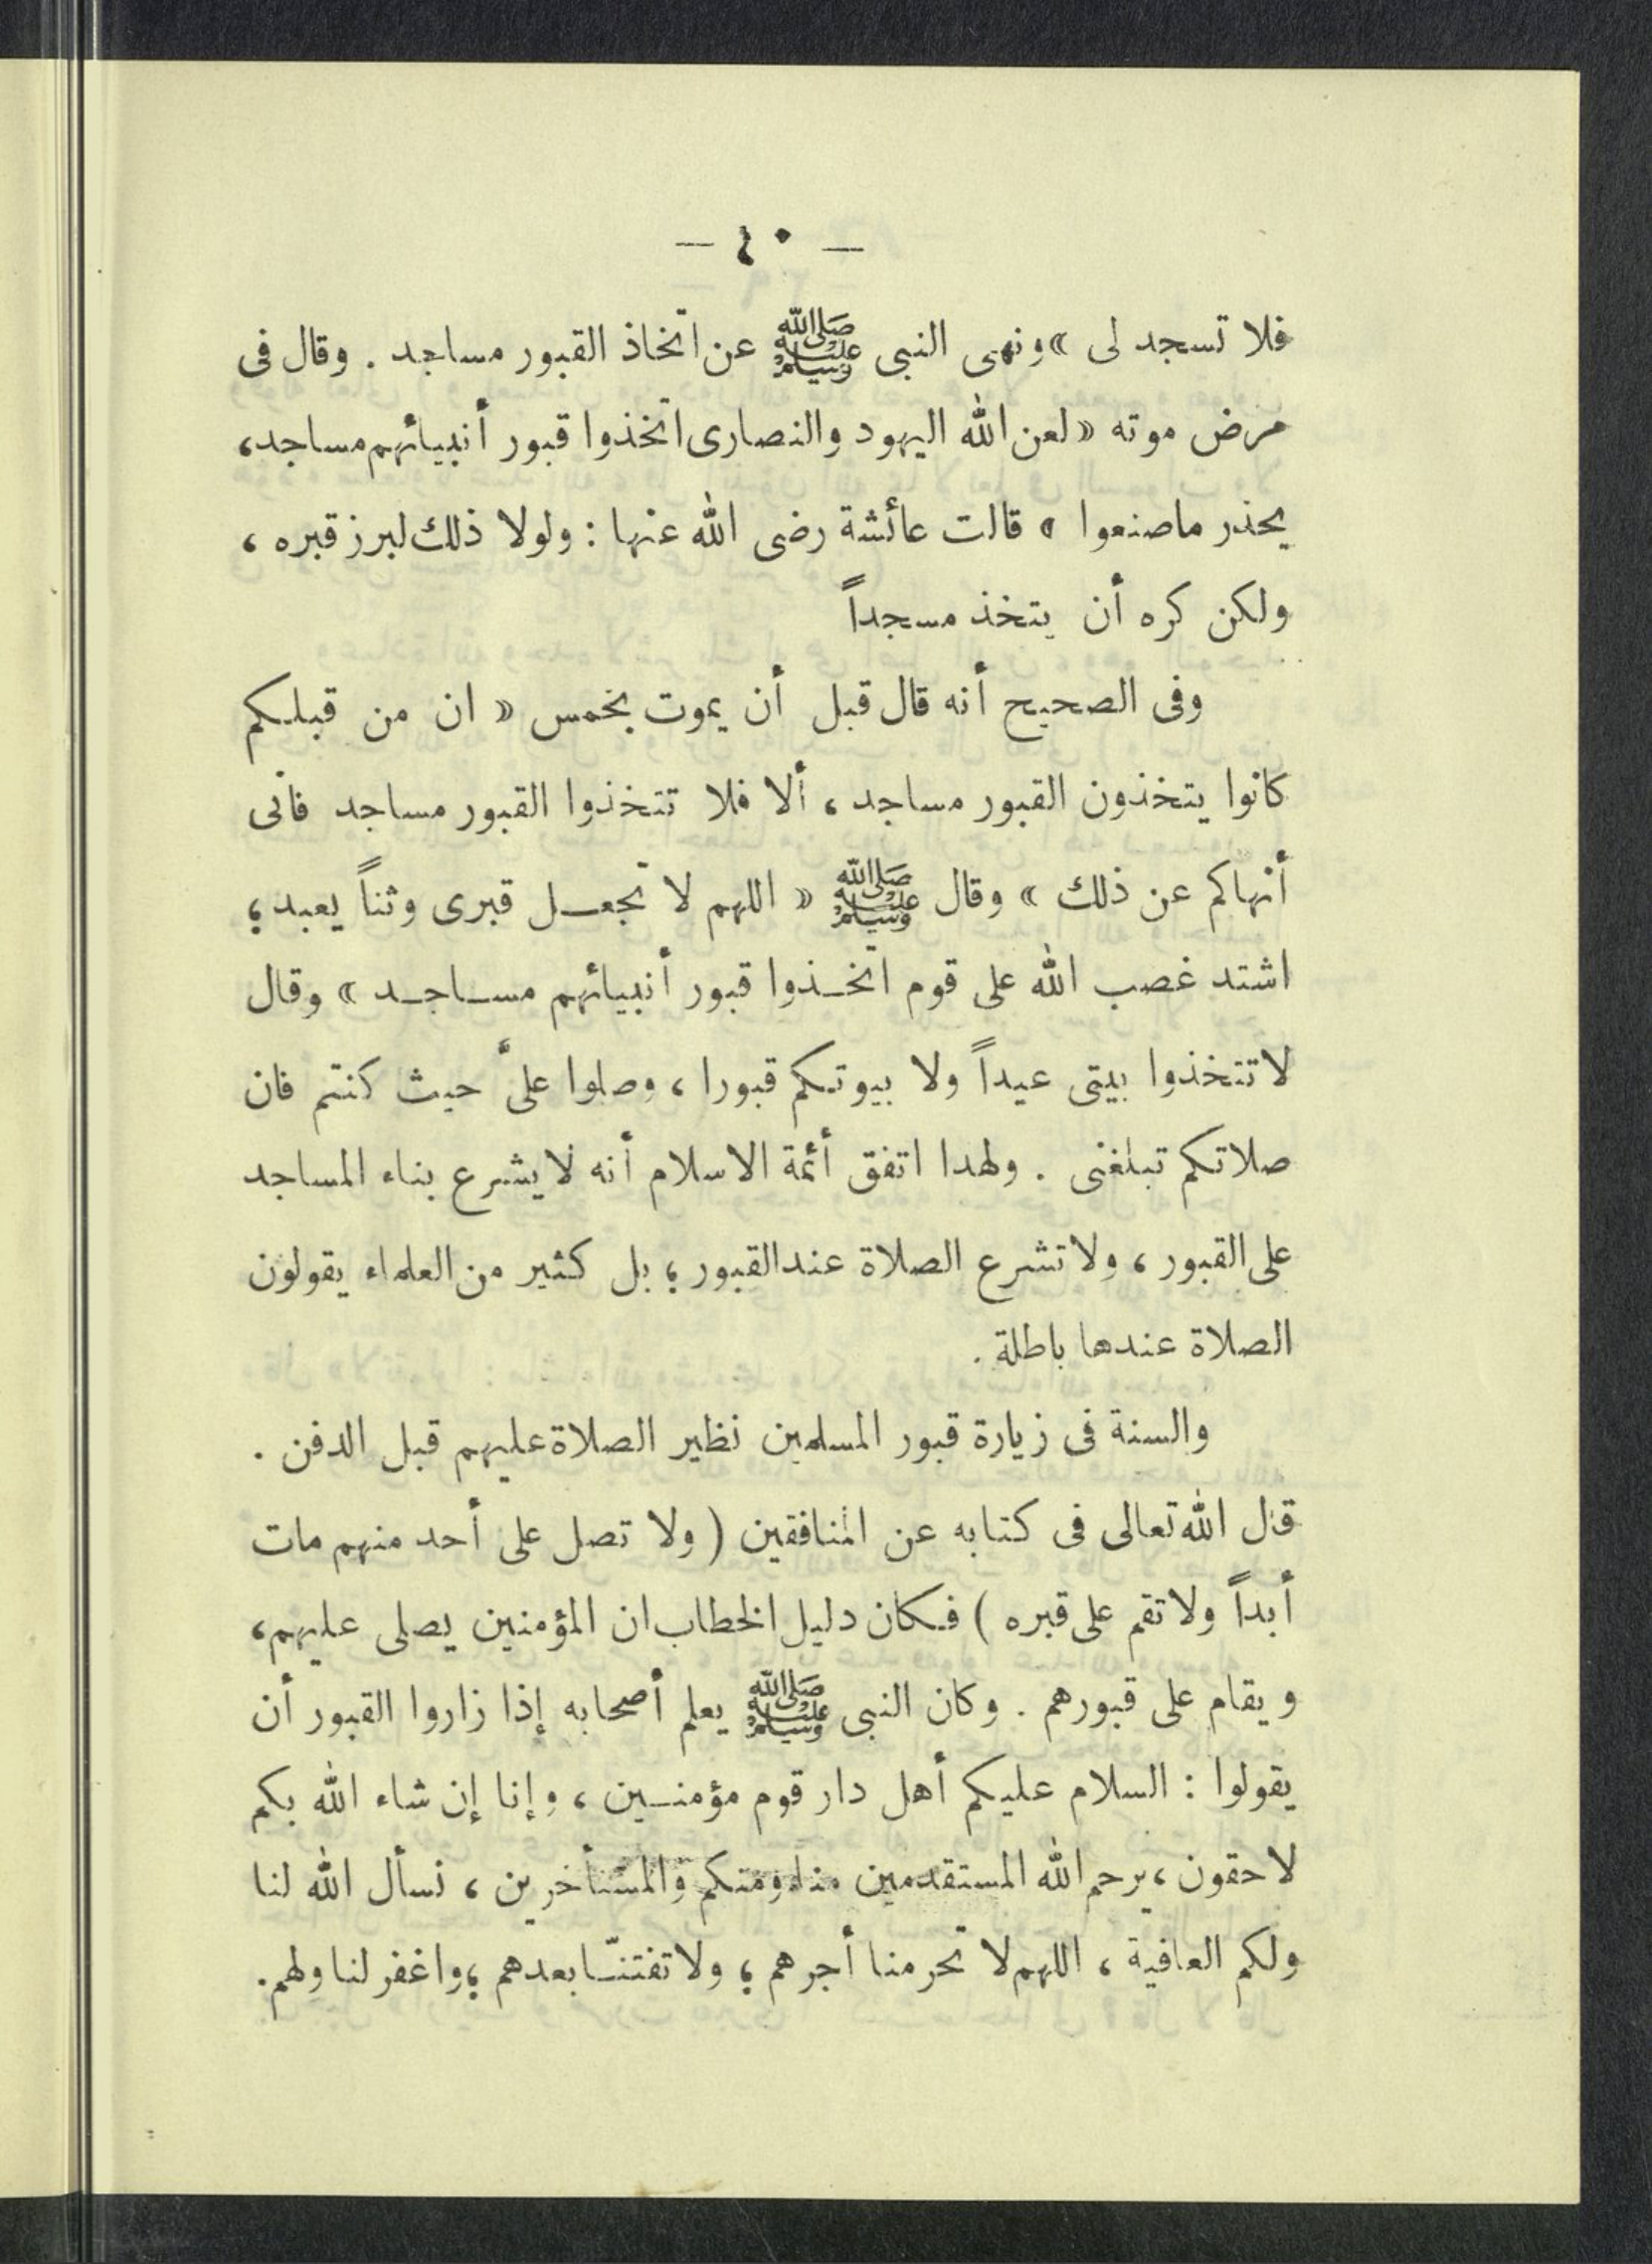 — ٤٠ —
فلا تسجد لى » ونهى النبى ﷺ عن اتخاذ القبور مساجد . وقال فى
مرض موته « لعن الله اليهود والنصارى اتخذوا قبور أنبيائهم مساجد،
يحذر ماصنعوا » قالت عائشة رضى الله عنها : ولولا ذلك لبرز قبره ،
ولكن كره أن يتخذ مسجداً
وفى الصحيح أنه قال قبل أن يموت بخمس « ان من قبلكم
كانوا يتخذون القبور مساجد ، ألا فلا تتخذوا القبور مساجد فانى
أنهاكم عن ذلك » وقال ﷺ « اللهم لا تجعل قبرى وثناً يعبد ؛
اشتد غصب الله على قوم اتخذوا قبور أنبيائهم مساجد » وقال
لاتتخذوا بيتى عيداً ولا بيوتكم قبورا ، وصلوا علىَّ حيث كنتم فان
صلاتكم تبلغنى . ولهدا اتفق أئمة الاسلام أنه لايشرع بناء المساجد
على القبور ، ولا تشرع الصلاة عند القبور ؛ بل كثير من العلماء يقولون
الصلاة عندها باطلة .
والسنة فى زيارة قبور المسلمين نظير الصلاة عليهم قبل الدفن .
قال الله تعالى فى كتابه عن المنافقين ( ولا تصل على أحد منهم مات
أبداً ولا تقم على قبره ) فكان دليل الخطاب ان المؤمنين يصلى عليهم،
ويقام على قبورهم . وكان النبى ﷺ يعلم أصحابه إذا زاروا القبور أن
يقولوا : السلام عليكم أهل دار قوم مؤمنين ، وإنا إن شاء الله بكم
لاحقون ، يرحم الله المستقدمين منا ومنكم والمستأخرين ، نسأل الله لنا
ولكم العافية ، اللهم لا تحرمنا أجرهم ؛ ولا تفتنّا بعدهم ؛ واغفر لنا ولهم.